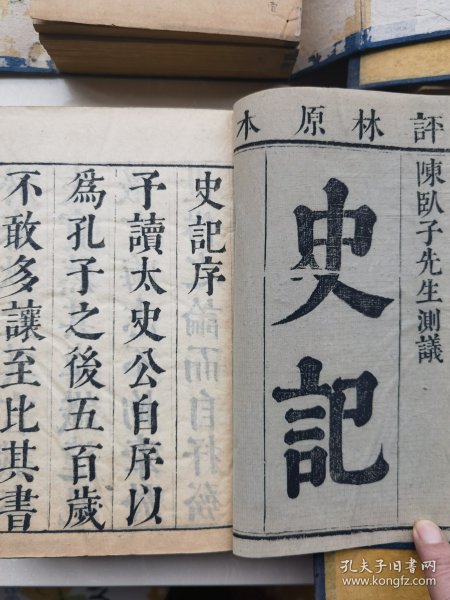 評林原本
陳臥子先生測議
史記
史記序
予讀太史公自序以
爲孔子之後五百歲
不敢多讓至比其書
孔夫子旧书网
www.kongfz.com